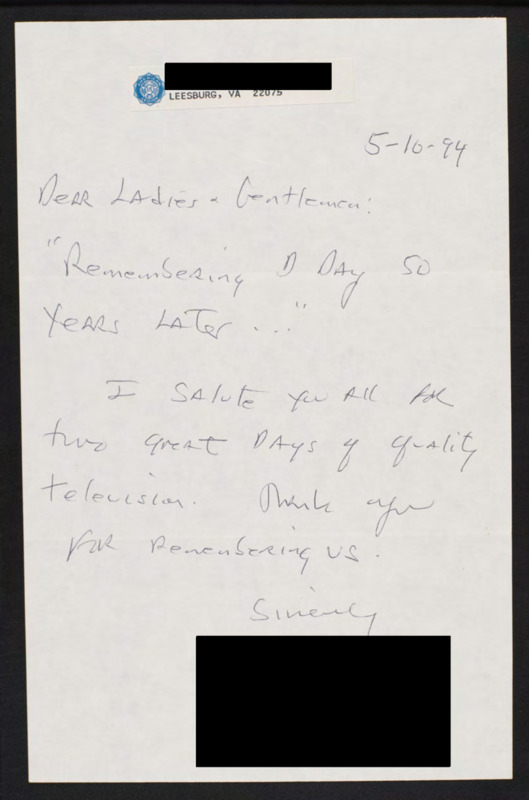 LEESBURG, VA 22075
5-10-94
Dear Ladies & Gentlemen:
"Remembering D Day 50
Years Later..."
I salute you all for
two great days of quality
television. Thank you
for remembering us.
Sincerely